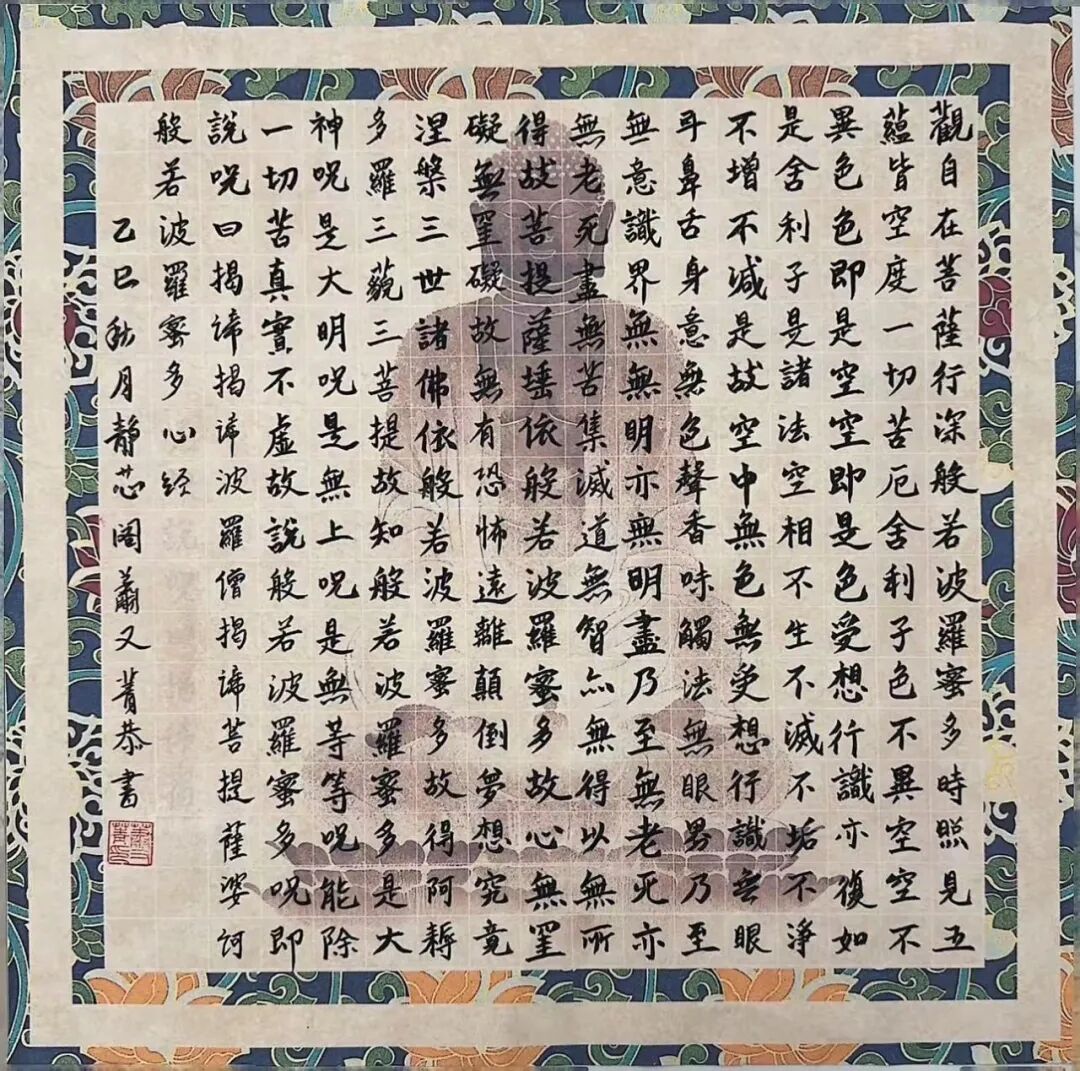 觀自在菩薩行深般若波羅蜜多時照見五
蘊皆空度一切苦厄舍利子色不異空空不
異色色即是空空即是色受想行識亦復如
是舍利子是諸法空相不生不滅不垢不淨
不增不減是故空中無色無受想行識無眼
耳鼻舌身意無色聲香味觸法無眼界乃至
無意識界無無明亦無明盡乃至無老死亦
無老死盡無苦集滅道無智亦無得以無所
得故菩提薩埵依般若波羅蜜多故心無罣
礙無罣礙故無有恐怖遠離顛倒夢想究竟
涅槃三世諸佛依般若波羅蜜多故得阿耨
多羅三藐三菩提故知般若波羅蜜多是大
神呪是大明呪是無上呪是無等等呪能除
一切苦真實不虛故說般若波羅蜜多呪即
說呪曰揭諦揭諦波羅僧揭諦菩提薩婆訶
般若波羅蜜多心經
乙巳秋月靜芯阁蕭又菁恭書